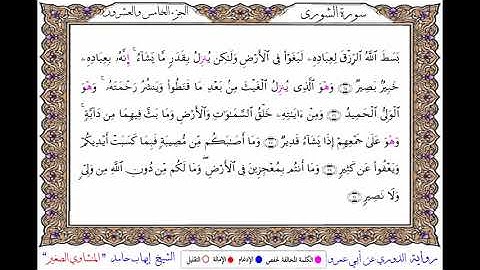 سورة الشورى
الجزء الخامس والعشرون
بَسَطَ ٱللَّهُ ٱلرِّزْقَ لِعِبَادِهِۦ لَبَغَوْا۟ فِى ٱلْأَرْضِ وَلَـٰكِن يُنزِلُ بِقَدَرٍ مَّا يَشَآءُ ۚ إِنَّهُۥ بِعِبَادِهِۦ
خَبِيرٌۢ بَصِيرٌ وَهْوَ ٱلَّذِى يُنزِلُ ٱلْغَيْثَ مِنۢ بَعْدِ مَا قَنَطُوا۟ وَيَنشُرُ رَحْمَتَهُۥ ۚ وَهْوَ
ٱلْوَلِىُّ ٱلْحَمِيدُ وَمِنْ ءَايَـٰتِهِۦ خَلْقُ ٱلسَّمَـٰوَٰتِ وَٱلْأَرْضِ وَمَا بَثَّ فِيهِمَا مِن دَآبَّةٍ ۚ
وَهْوَ عَلَىٰ جَمْعِهِمْ إِذَا يَشَآءُ قَدِيرٌ وَمَآ أَصَـٰبَكُم مِّن مُّصِيبَةٍ فَبِمَا كَسَبَتْ أَيْدِيكُمْ
وَيَعْفُوا۟ عَن كَثِيرٍ وَمَآ أَنتُم بِمُعْجِزِينَ فِى ٱلْأَرْضِ ۖ وَمَا لَكُم مِّن دُونِ ٱللَّهِ مِن وَلِىٍّ
وَلَا نَصِيرٍ
رواية الدوري عن أبي عمرو
الكلمة المخالفة لحفص الإدغام الإمالة التقليل
الشيخ إيهاب حامد "المنشاوي الصغير"